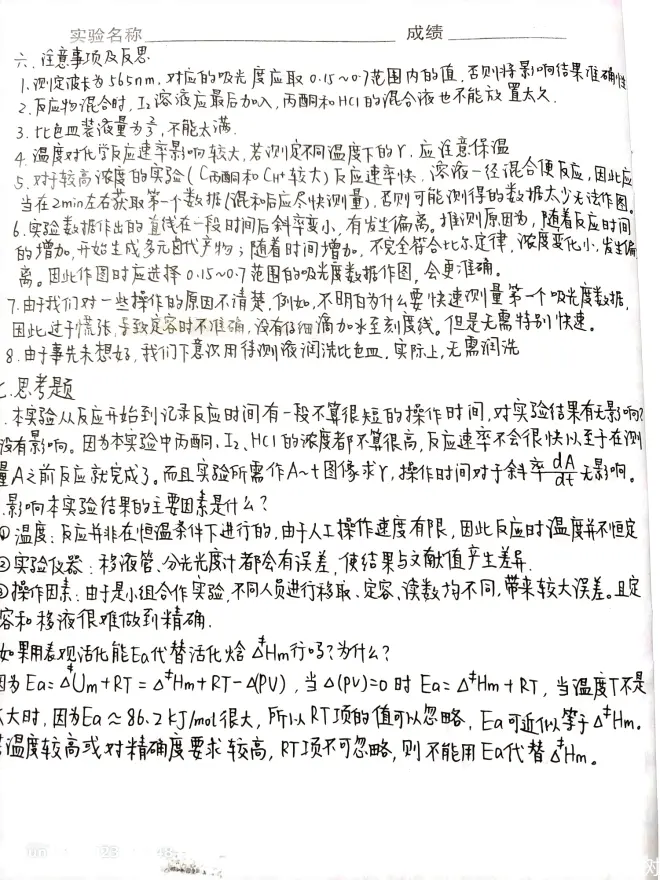 实验名称 成绩
六、注意事项及反思
1.测定波长为565nm,对应的吸光度应取0.15~0.7范围内的值,否则将影响结果准确性
2.反应物混合时,I₂溶液应最后加入,丙酮和HCl的混合液也不能放置太久.
3.比色皿装液量为⅔,不能太满.
4.温度对化学反应速率影响较大,若测定不同温度下的r,应注意保温
5.对于较高浓度的实验(C丙酮和CH⁺较大)反应速率快,溶液一经混合便反应,因此应
当在2min左右获取第一个数据(混和后应尽快测量),否则可能测得的数据太少无法作图。
6.实验数据作出的直线在一段时间后斜率变小,有发生偏离。推测原因为,随着反应时间
的增加,开始生成多元卤代产物;随着时间增加,不完全符合比尔定律,浓度变化小,发生偏
离。因此作图时应选择0.15~0.7范围的吸光度数据作图,会更准确.
7.由于我们对一些操作的原因不清楚,例如,不明白为什么要快速测量第一个吸光度数据,
因此过于慌张,导致定容时不准确,没有仔细滴加水至刻度线。但是无需特别快速.
8.由于事先未想好,我们下意识用待测液润洗比色皿.实际上,无需润洗
七.思考题
.本实验从反应开始到记录反应时间有一段不算很短的操作时间,对实验结果有无影响?
没有影响。因为本实验中丙酮、I₂、HCl的浓度都不算很高,反应速率不会很快以至于在测
量A之前反应就完成了。而且实验所需作A~t图像求r,操作时间对于斜率dA/dt无影响。
.影响本实验结果的主要因素是什么?
①温度:反应并非在恒温条件下进行的,由于人工操作速度有限,因此反应时温度并不恒定
②实验仪器:移液管、分光光度计都会有误差,使结果与文献值产生差异.
③操作因素:由于是小组合作实验,不同人员进行移取、定容、读数均不同,带来较大误差。且定
容和移液很难做到精确.
如果用表观活化能Ea代替活化焓Δ‡Hm行吗?为什么?
因为Ea=Δ‡Um+RT=Δ‡Hm+RT-Δ(PV),当Δ(PV)=0时Ea=Δ‡Hm+RT,当温度T不是
太大时,因为Ea≈86.2kJ/mol很大,所以RT项的值可以忽略,Ea可近似等于Δ‡Hm.
若温度较高或对精确度要求较高,RT项不可忽略,则不能用Ea代替Δ‡Hm。